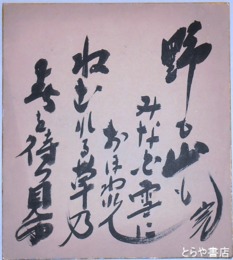 野も山も
みな白雪に
おほわれて
ねむれる草乃
春を待つ
とらや書店